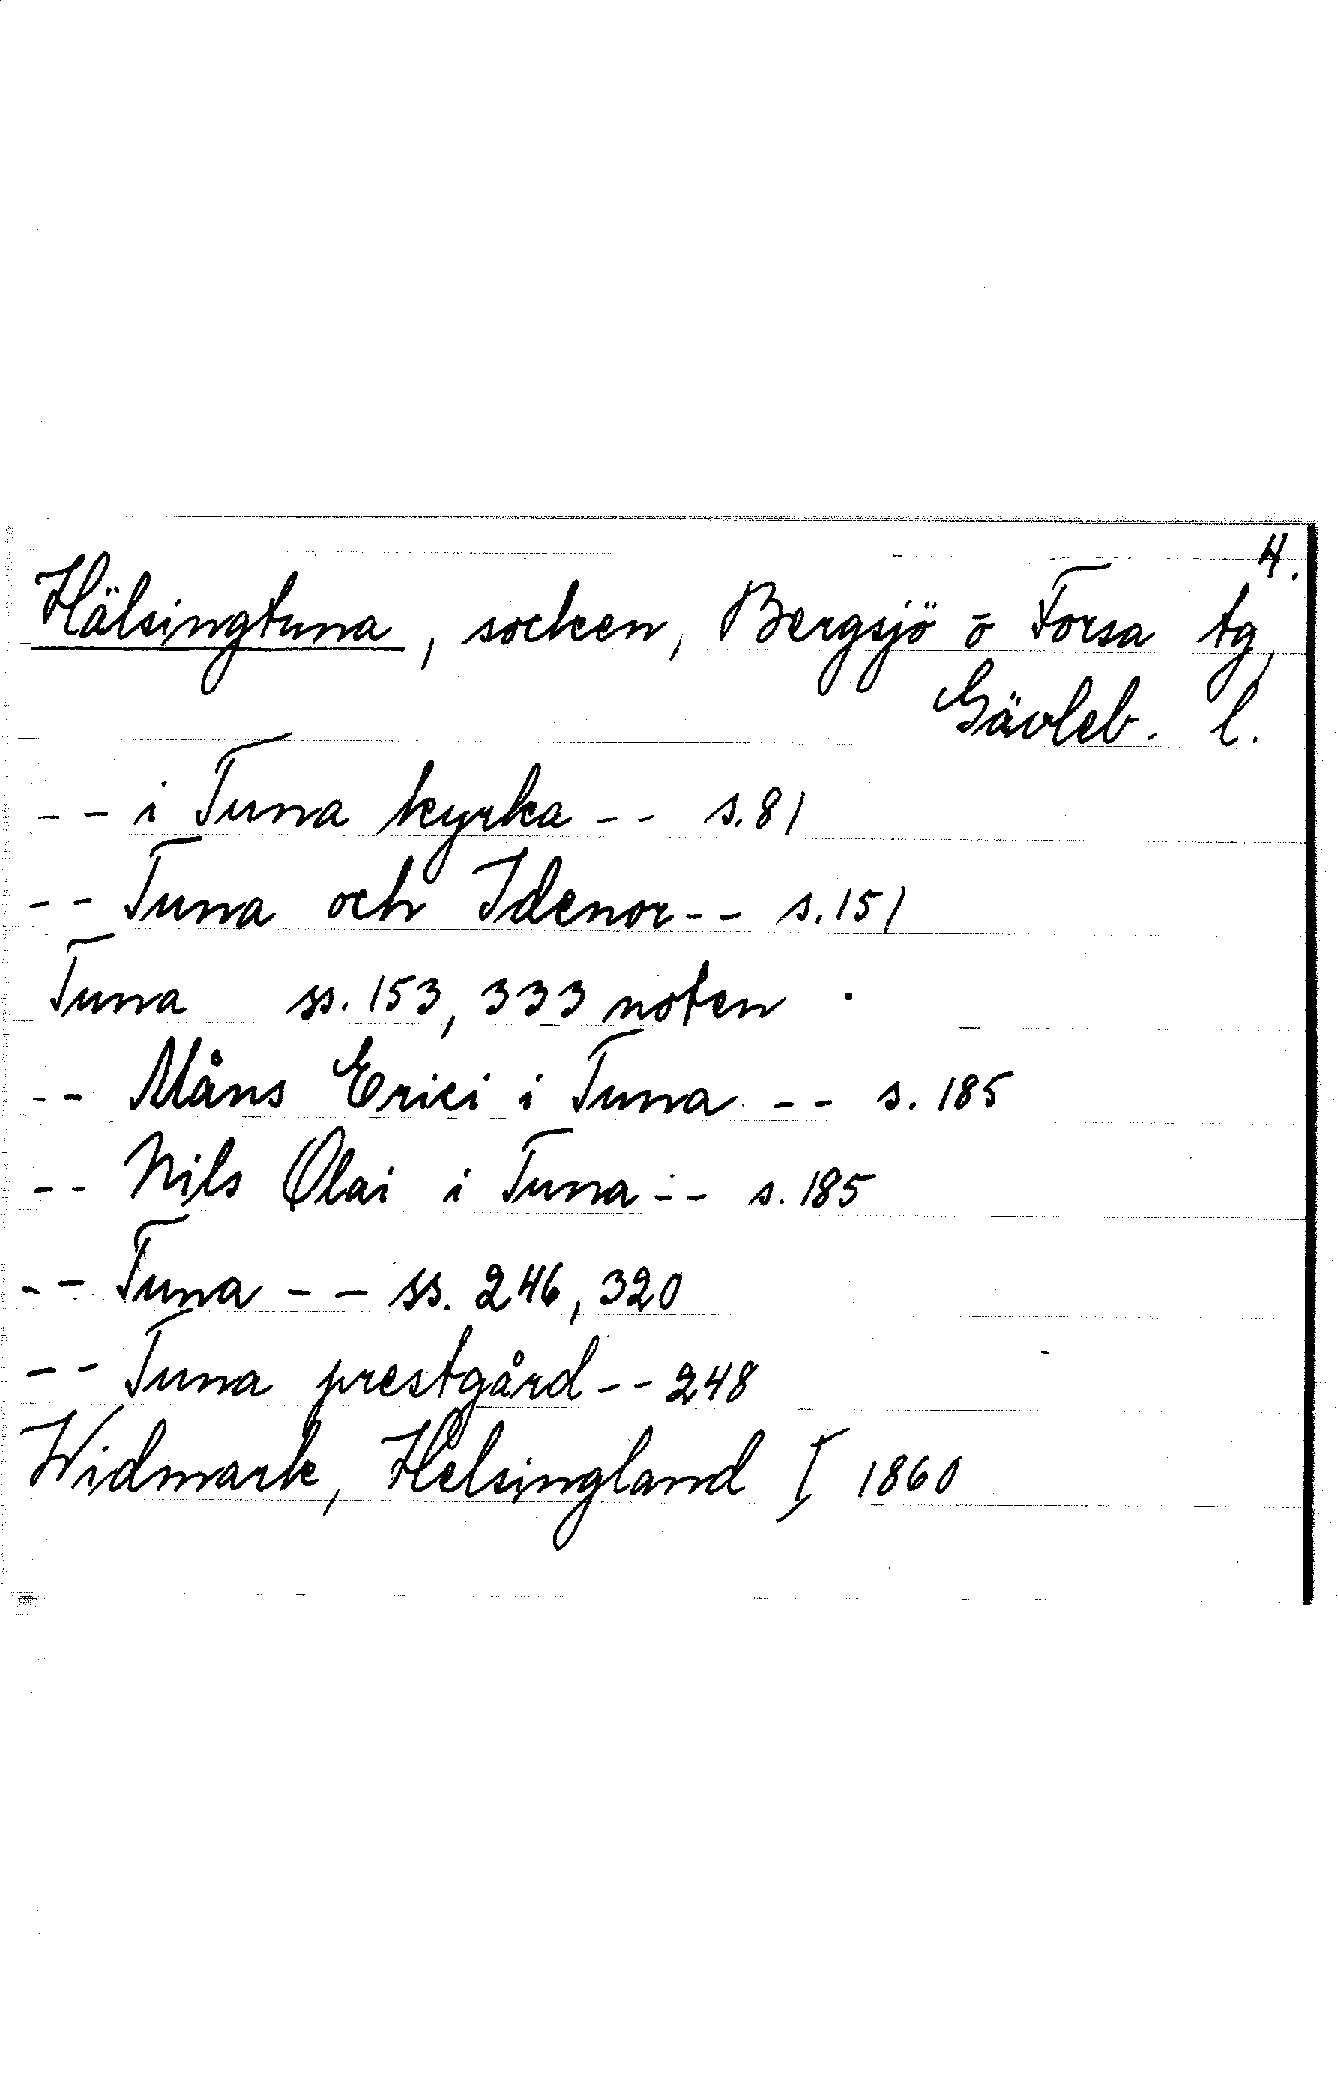 4.
Hälsingtuna, socken, Bergsjö o Forsa tg,
Gävleb. l.
-- i Tuna kyrka -- s. 81
-- Tuna och Idenor -- s. 151
Tuna ss. 153, 333 noten
-- Måns Erici i Tuna -- s. 185
-- Nils Olai i Tuna -- s. 185
-- Tuna -- ss. 246, 320
-- Tuna prestgård -- 248
Widmark, Helsingland I 1860